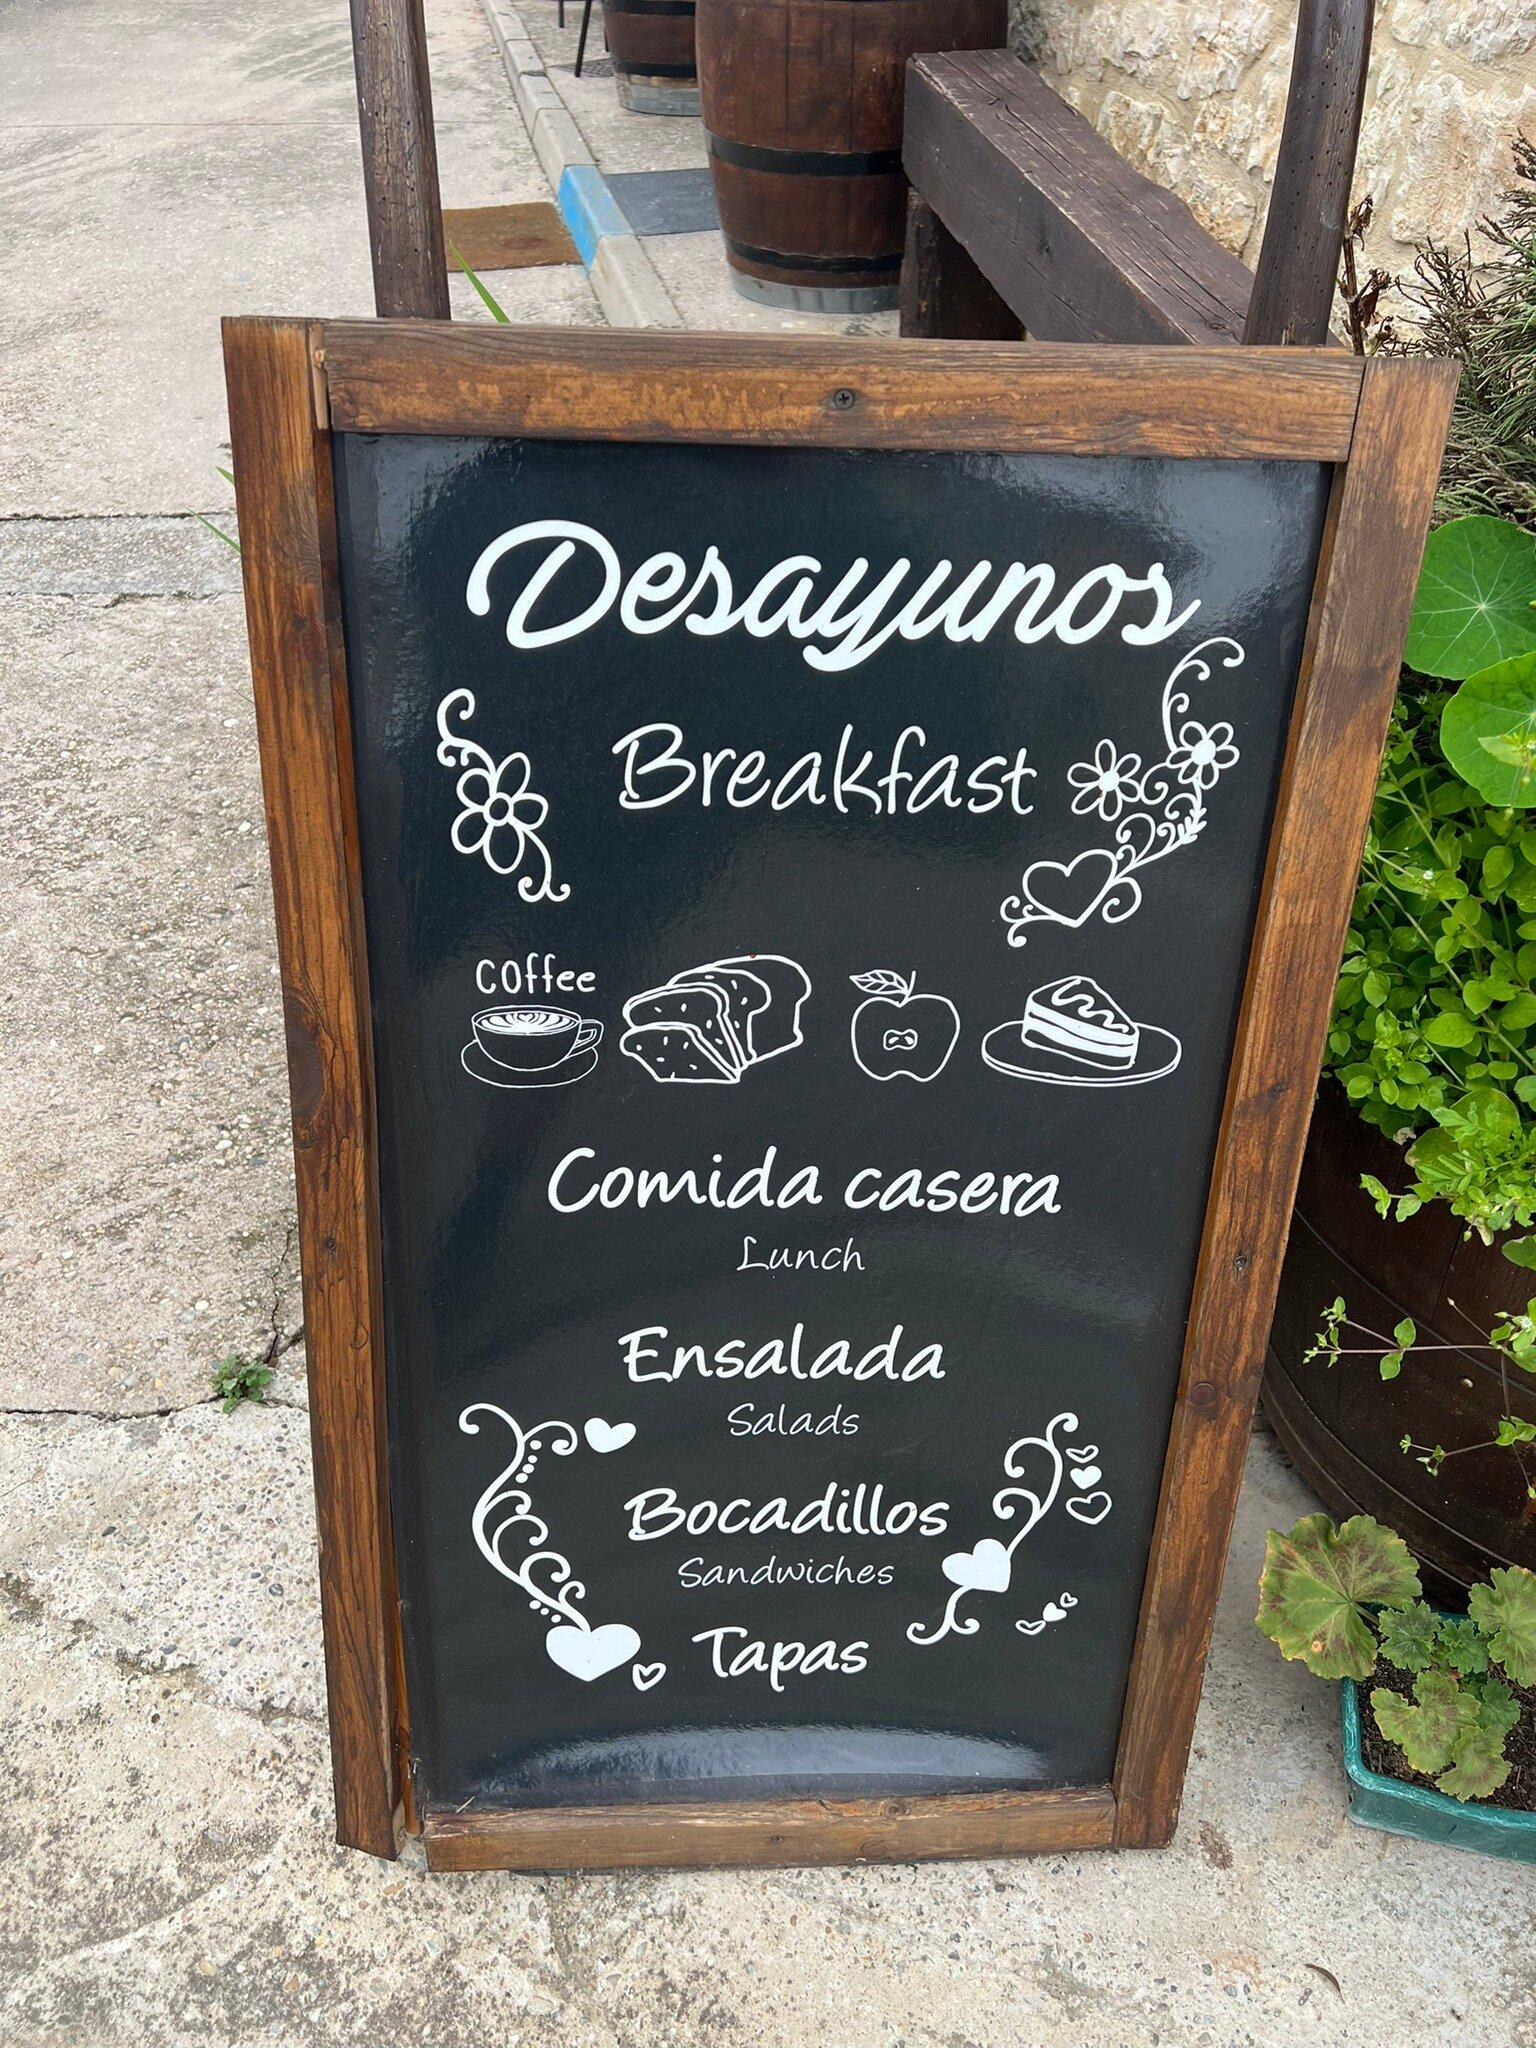 Desayunos
Breakfast
coffee
Comida casera
Lunch
Ensalada
Salads
Bocadillos
Sandwiches
Tapas